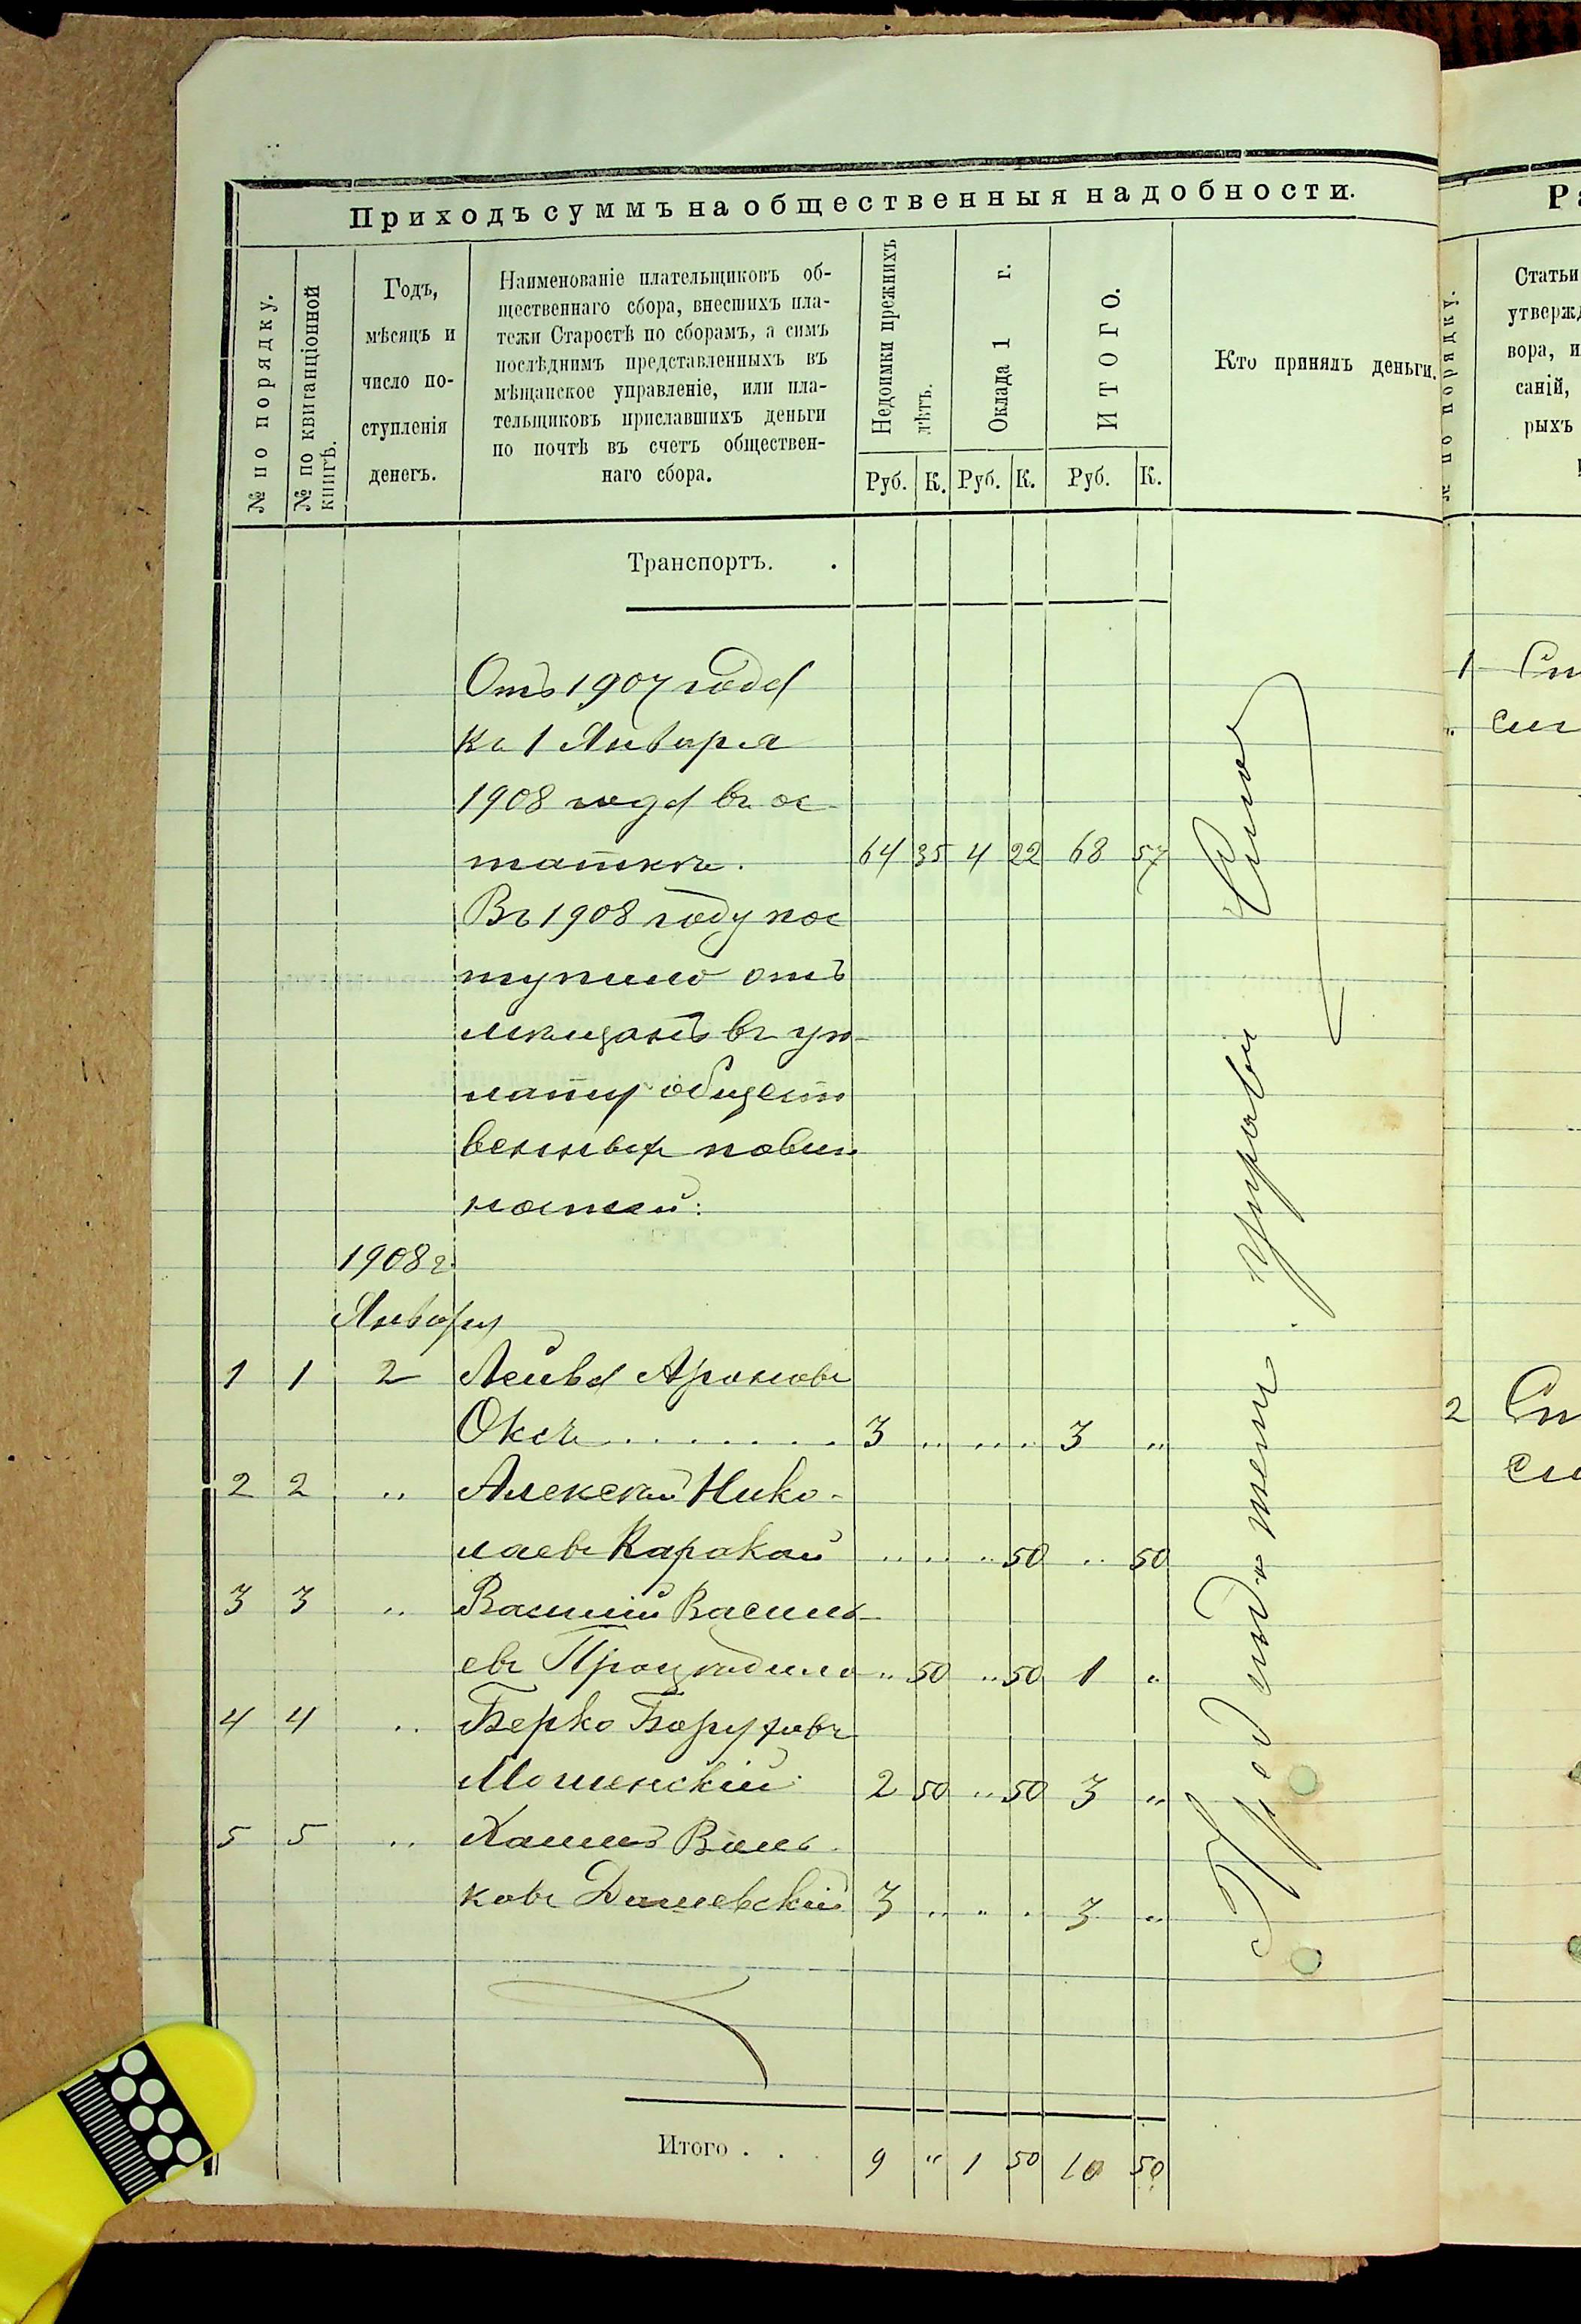 Приходъ суммъ на общественныя надобности.
№ по порядку.
№ по квитанціонной
книгѣ.
Годъ,
мѣсяцъ и
число по-
ступленія
денегъ.
Наименованіе плательщиковъ об-
щественнаго сбора, внесшихъ пла-
тежи Старостѣ по сборамъ, а симъ
послѣднимъ представленныхъ въ
мѣщанское управленіе, или пла-
тельщиковъ приславшихъ деньги
по почтѣ въ счетъ обществен-
наго сбора.
Недоимки прежнихъ
лѣтъ.
Оклада 1 г.
ИТОГО.
Кто принялъ деньги.
Руб. К. Руб. К. Руб. К.
Транспортъ. .
Отъ 1907 года
къ 1 Января
1908 года въ ос
таткѣ. 64 35 4 22 68 57
Въ 1908 году пос
тупило отъ
мѣщанъ въ уп-
лату обществ
венныхъ повин
ностей:
1908 г.
Января
1 1 2 Лейба Ароновъ
Оксъ . . . . . . . . 3 .. .. .. 3 "
2 2 .. Алексѣй Нико-
лаевъ Каракай .. .. .. 50 .. 50
3 3 .. Василій Василь-
евъ " 50 .. 50 1 "
4 4 .. Берко Боруховъ
Мошенскій 2 50 .. 50 3 "
5 5 .. Хаимъ Воль
ковъ Дашевскій 3 .. .. . 3 "
Итого . . . 9 " 1 50 10 50
управы
Ра
№ по порядку.
Статьи
утвержд
вора, и
саній,
рыхъ
1 Ст
" см
2 Ст
см